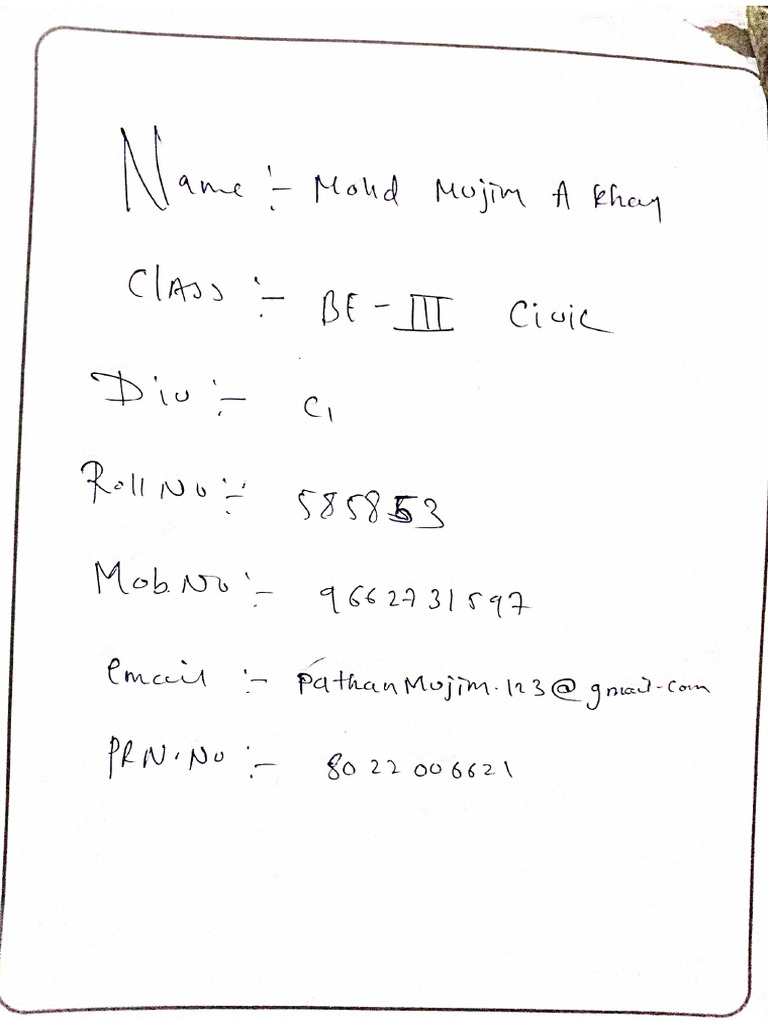 Name :- Mohd Mujim A Khan
Class :- BE-III Civil
Div :- C1
Roll No :- 585853
Mob. No :- 9662731597
email :- PathanMujim.123@gmail.com
PRN. No :- 8022006621